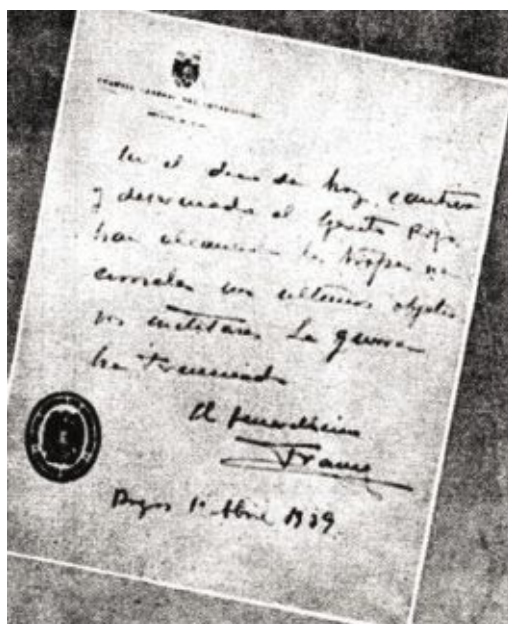 CUARTEL GENERAL DEL GENERALISIMO
En el dia de hoy, cautivo
y desarmado el Ejercito rojo,
han alcanzado las tropas na
cionales sus ultimos objeti
vos militares. La guerra
ha terminado
El Generalísimo
Franco
Burgos 1º Abril 1939